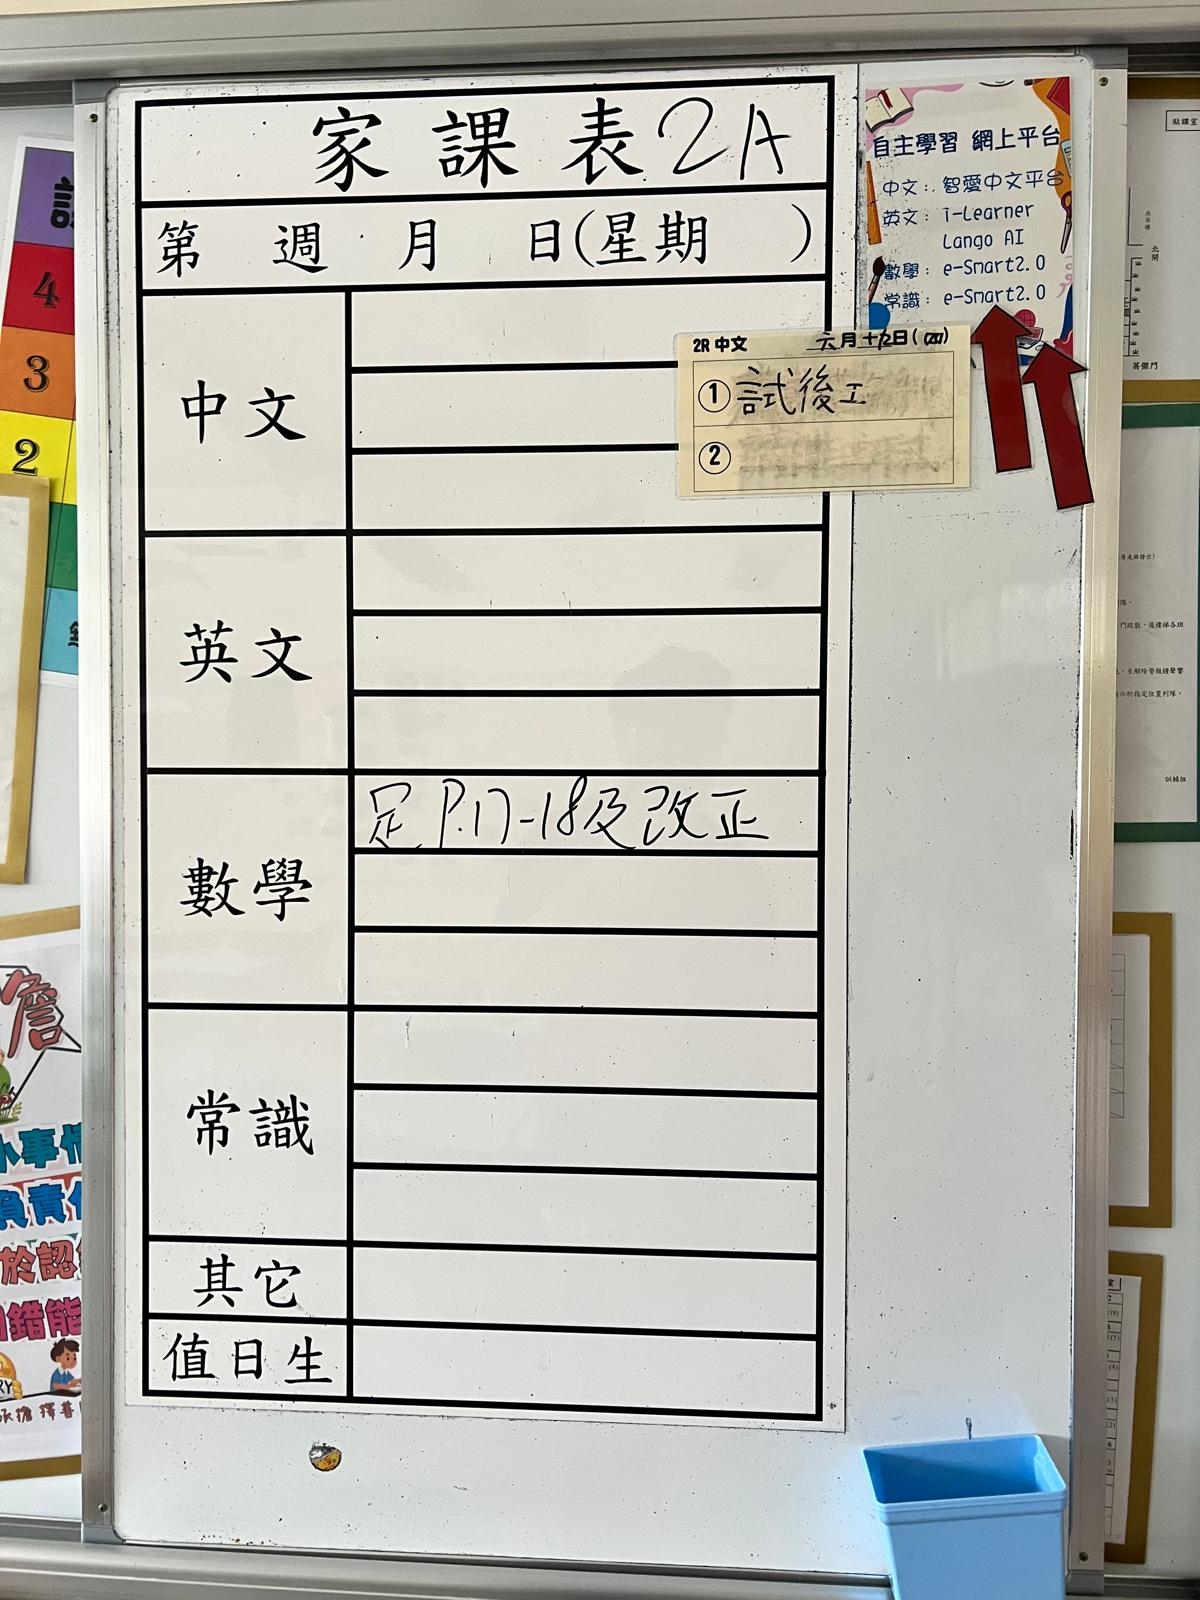 家課表 2A
第 週 月 日(星期 )
中文
英文
數學
足 P.17-18及改正
常識
其它
值日生
2R 中文 六月十2日(四)
① 試後工
②
自主學習 網上平台
中文: 智愛中文平台
英文: i-Learner
Lango AI
數學: e-Smart2.0
常識: e-Smart2.0
4
3
2
貼課室
北閘
英傑門
訓輔組
小事情
負責任